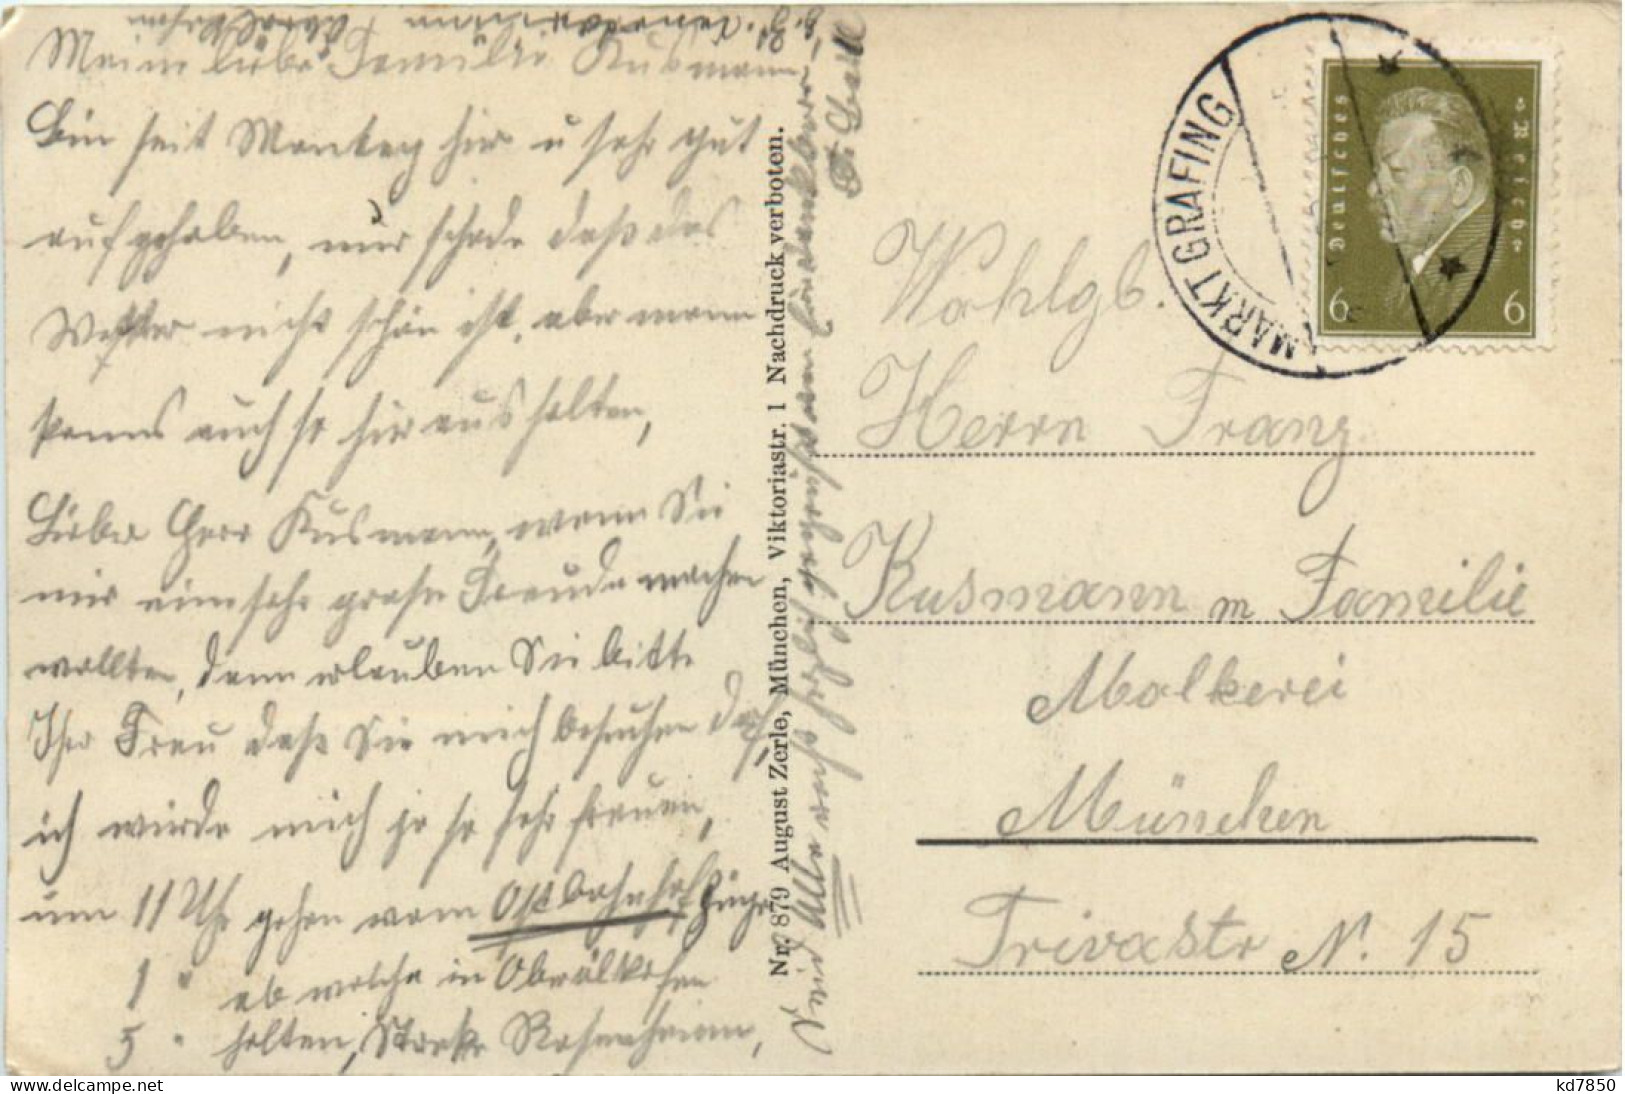 Meine liebe Familie Kusmann,
Bin seit Montag hier u sehr gut
aufgehoben, nur schade daß das
Wetter nicht schön ist, aber mann
kanns auch so hier aushalten,
Lieber Herr Kusmann, wenn Sie
mir eine sehr große Freude machen
wollten, dann erlauben Sie bitte
Ihre Frau daß Sie mich besuchen darf,
ich würde mich ja so sehr freuen,
um 11 Uhr gehen vom Ostbahnhof Züge
1 " ab welche in Oberölkofen
5 " halten, Strecke Rosenheim,
Nr. 879 August Zerle, München, Viktoriastr. 1 Nachdruck verboten.
MARKT GRAFING
Deutsches Reich
6 6
Wohlgb.
Herrn Franz
Kusmann m Familie
Molkerei
München
Trivastr N. 15
kd7850